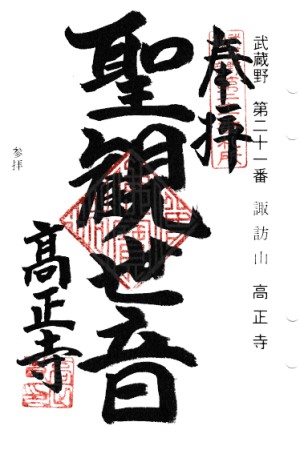 武蔵野 第二十一番 諏訪山 高正寺
奉拝
聖観世音
高正寺
参拝